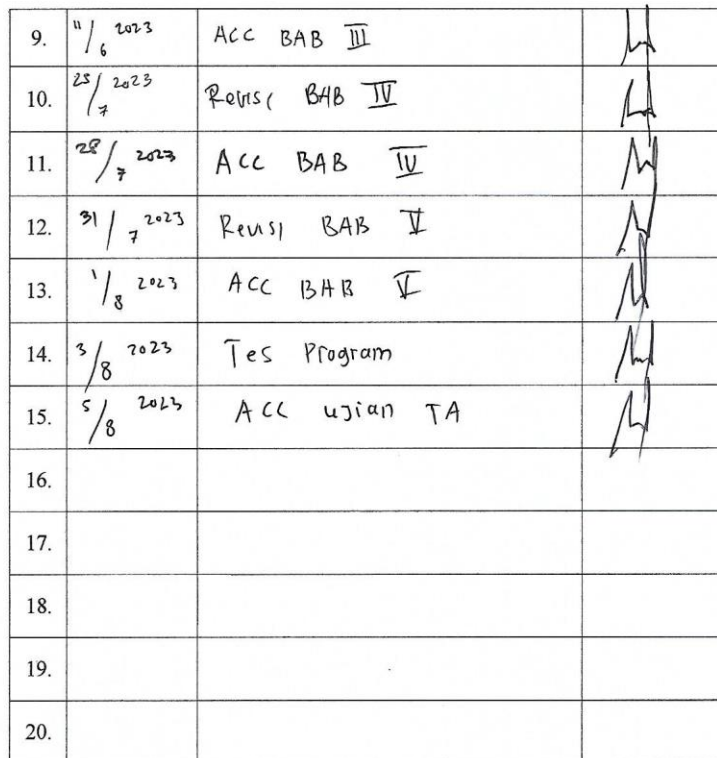 9. 11/6 2023 ACC BAB III
10. 25/7 2023 Revisi BAB IV
11. 28/7 2023 ACC BAB IV
12. 31/7 2023 Revisi BAB V
13. 1/8 2023 ACC BAB V
14. 3/8 2023 Tes Program
15. 5/8 2023 ACC ujian TA
16.
17.
18.
19.
20.